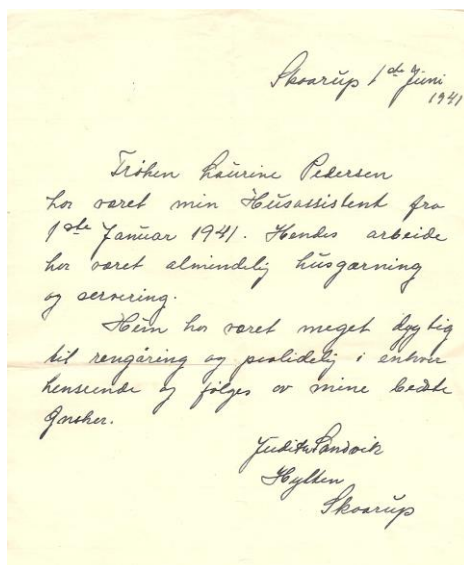 Skaarup 1ste Juni
1941
Frøken Laurine Pedersen
har været min Husassistent fra
1ste Januar 1941. Hendes arbeide
har været almindelig husgærning
og servering.
Hun har været meget dygtig
til rengøring og paalidelig i enhver
henseende og følges av mine bedste
Ønsker.
Judith Sandvik
Hylten
Skaarup